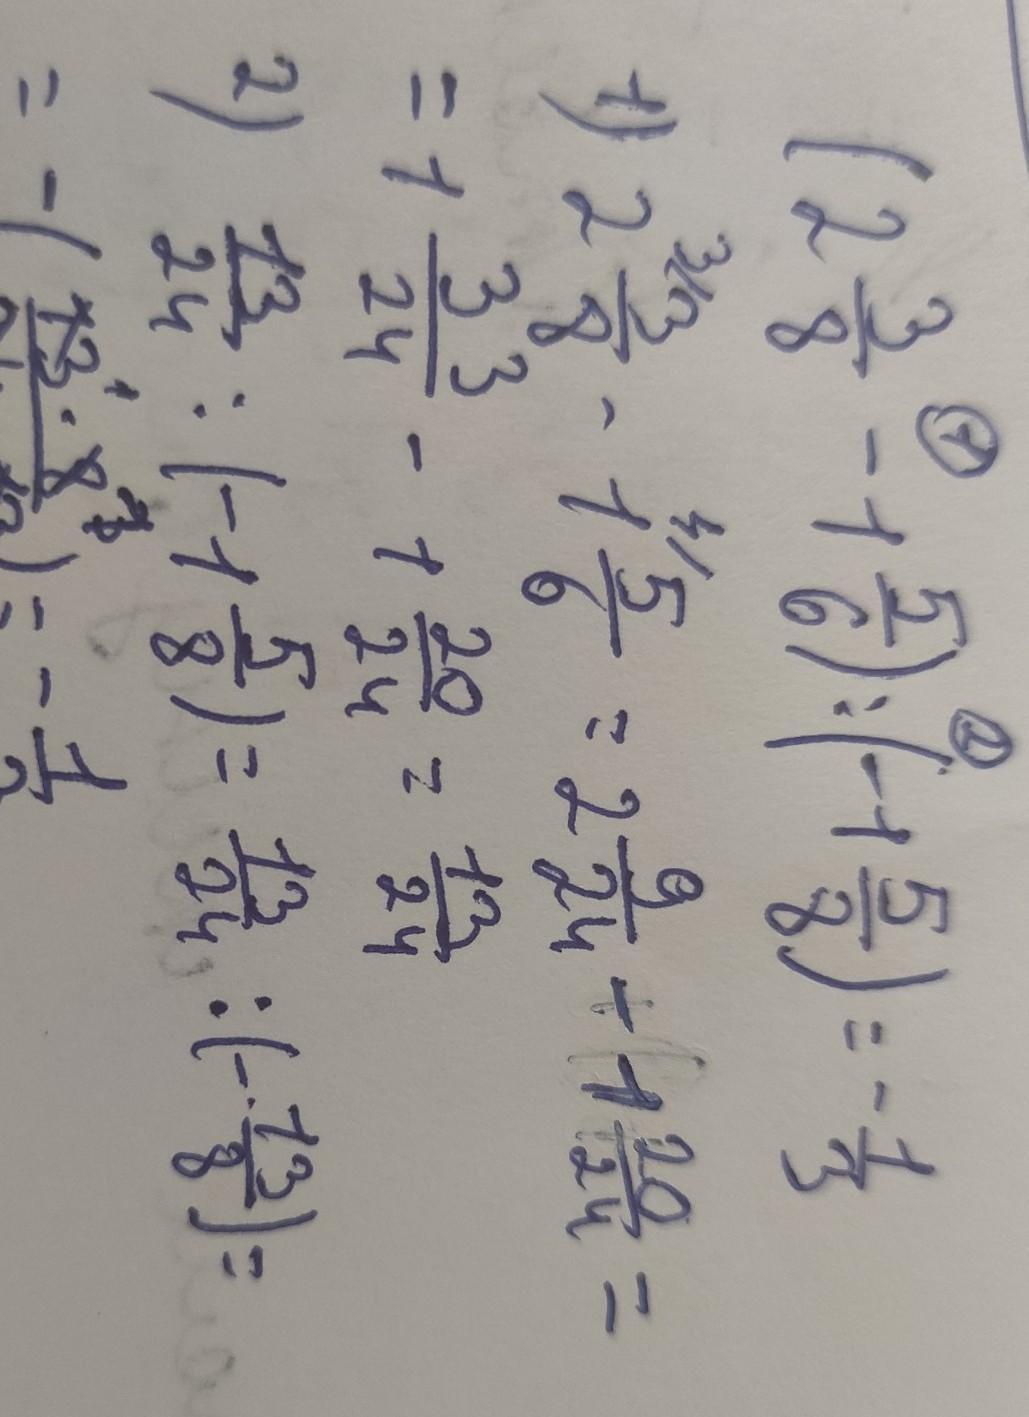 (2 3/8 - 1 5/6) : (-1 5/8) = - 1/3
1) 2 3/8 - 1 5/6 = 2 9/24 + 1 20/24 =
= 1 33/24 - 1 20/24 = 13/24
2) 13/24 : (-1 5/8) = 13/24 : (-13/8) =
= - (13 · 8